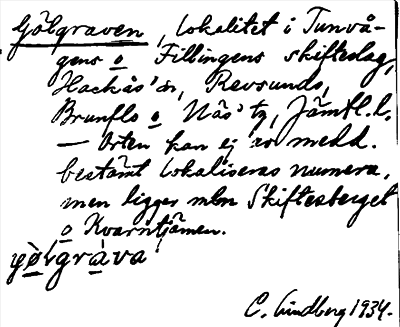 Gölgraven, lokalitet i Tunvå-
gens o Fillingens skifteslag,
Hackås' sn, Revsunds,
Brunflo o Näs' tg, Jämtl. l.
— Orten kan ej av medd.
bestämt lokaliseras numera,
men ligger mlm Skiftesberget
o Kvarntjämen.
C. Lindberg 1934.